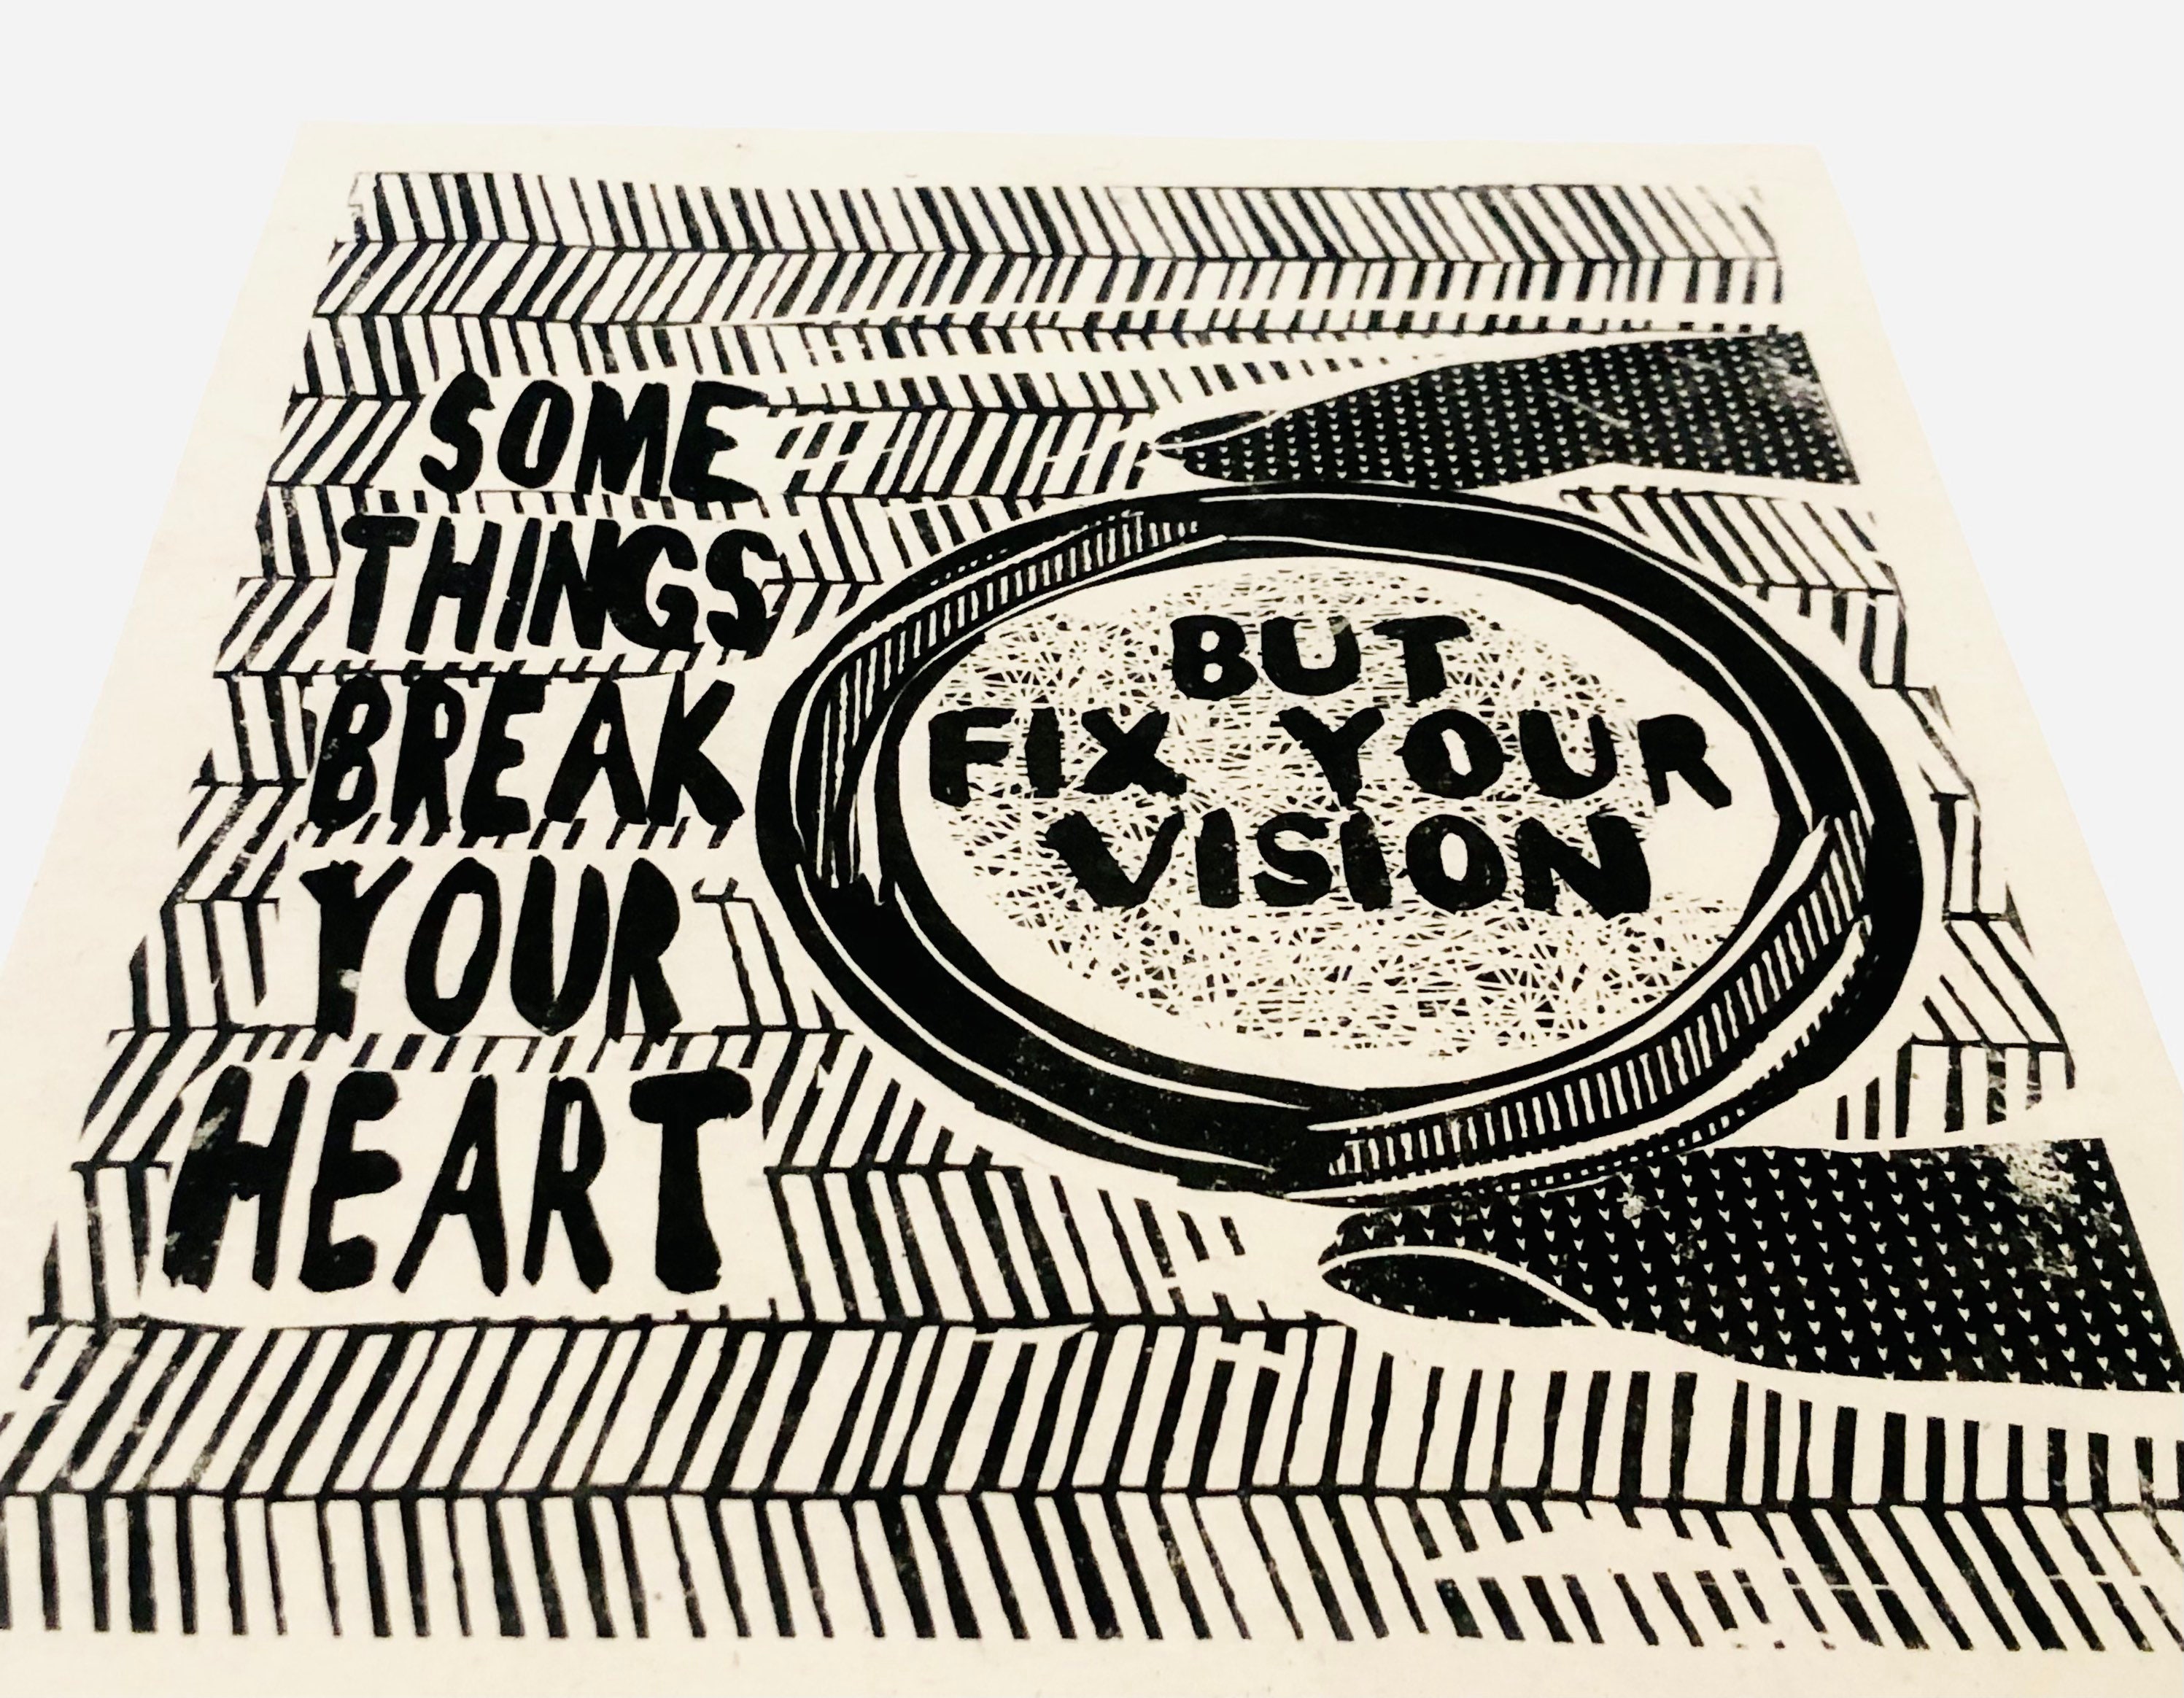 SOME
THINGS
BREAK
YOUR
HEART
BUT
FIX YOUR
VISION